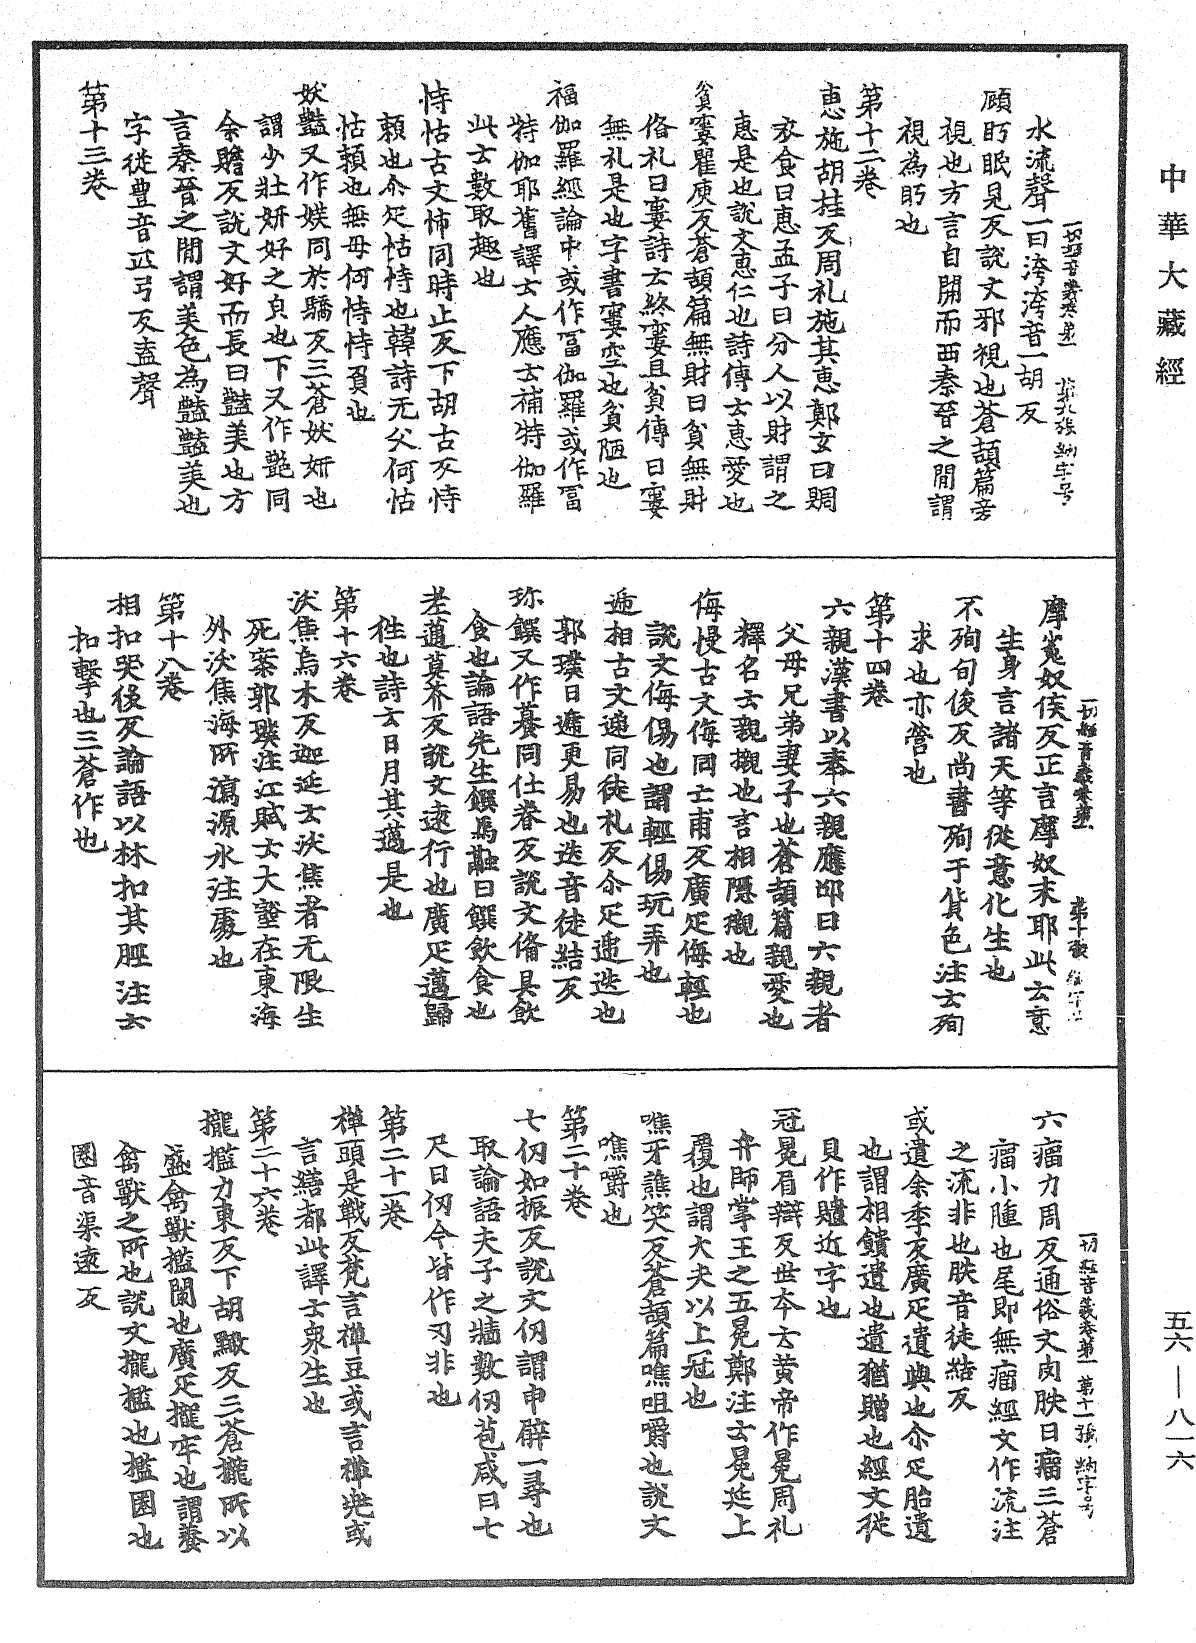 中華大藏經
一切經音義卷第一 第九張 納字号
水流聲一曰洿洿音一胡反
頋眄眠見反說文邪視也蒼頡篇旁
視也方言自開而西秦晉之間謂
視為眄也
第十二卷
惠施胡桂反周礼施其惠鄭玄曰賙
衣食曰惠孟子曰分人以財謂之
惠是也說文惠仁也詩傳士惠愛也
貧寠瞿庾反蒼頡篇無財曰貧無財
俻礼曰寠詩云終寠且貧傳曰寠
無礼是也字書寠空也貧陋也
福伽羅經論中或作冨伽羅或作冨
特伽耶舊譯云人應云補特伽羅
此云數取趣也
恃怙古文怖同時止反下胡古反恃
賴也尒疋怙恃也韓詩无父何怙
怙賴也無母何恃恃負也
妖豔又作媄同於驕反三蒼妖妍也
謂少壯妍好之皃也下又作艷同
余贍反說文好而長曰豔美也方
言秦晉之間謂美色為豔豔美也
字從豊音匹弓反盍聲
第十三卷
一切經音義卷第一 第十張 納字号
摩㝹奴侯反正言摩奴末耶此云意
生身言諸天等從意化生也
不殉句俊反尚書殉于貨色注云殉
求也亦營也
第十四卷
六親漢書以奉六親應邵曰六親者
父母兄弟妻子也蒼頡篇親愛也
釋名云親襯也言相隱襯也
侮慢古文侮同亡甫反廣疋侮輕也
說文侮傷也謂輕傷玩弄也
遞相古文递同徒礼反尒疋遞迭也
郭璞曰遞更易也迭音徒結反
珎饌又作䉵同仕眷反說文俻具飲
食也論語先生饌馬融曰饌飲食也
老邁莫芥反說文遠行也廣疋邁歸
徃也詩云日月其邁是也
第十六卷
沃焦烏木反迦延云沃焦者无限生
死案郭璞注江賦云大壑在東海
外沃焦海所瀉源水注處也
第十八卷
相扣哭後反論語以杖扣其脛注云
扣擊也三蒼作也
一切經音義卷第一 第十一張 納字号
六瘤力周反通俗文肉胅曰瘤三蒼
瘤小腫也尾即無瘤經文作流注
之流非也胅音徒結反
或遺余季反廣疋遺與也尒疋胎遺
也謂相饋遺也遺猶贈也經文從
貝作䞇近字也
冠冕眉辯反世本云黄帝作冕周礼
弁師掌王之五冕鄭注云冕延上
覆也謂大夫以上冠也
噍牙譙笑反蒼頡篇噍咀嚼也說文
噍嚼也
第二十卷
七仞如振反說文仞謂申臂一尋也
取論語夫子之牆數仞苞咸曰七
尺曰仞今皆作刃非也
第二十一卷
樿頭是戰反梵言樿豆或言樿兠或
言繕都此譯云衆生也
第二十六卷
櫳檻力東反下胡黤反三蒼櫳所以
盛禽獸檻闌也廣疋櫳牢也謂養
禽獸之所也說文櫳檻也檻圈也
圈音渠遠反
五六—八一六